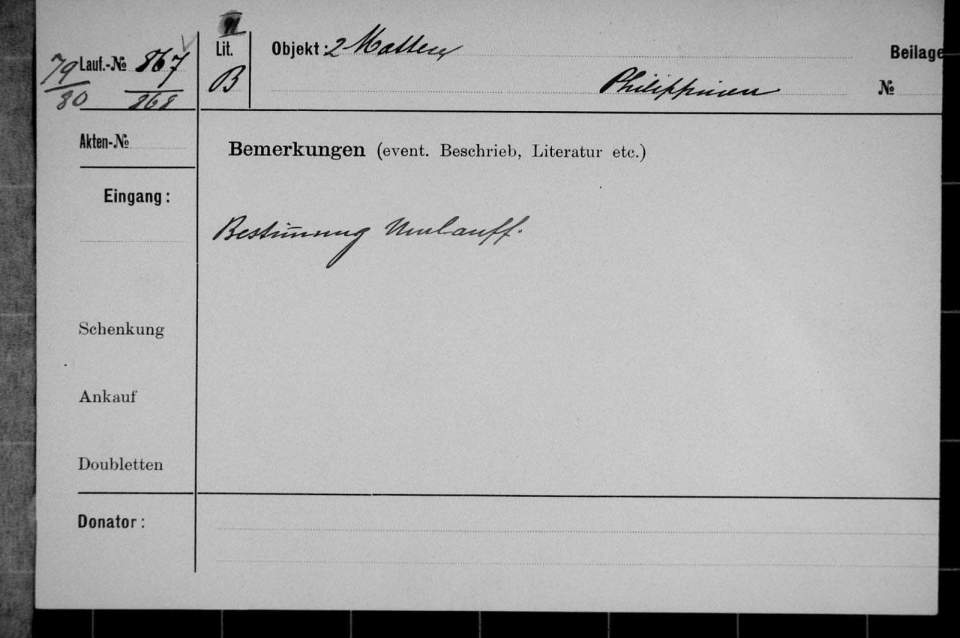 II
Lauf.-№ 867
79/80 868
Lit.
B
Objekt: 2 Matten
Philippinen
Beilage
№
Akten-№
Bemerkungen (event. Beschrieb, Literatur etc.)
Eingang:
Bestimmung Umlauff.
Schenkung
Ankauf
Doubletten
Donator: